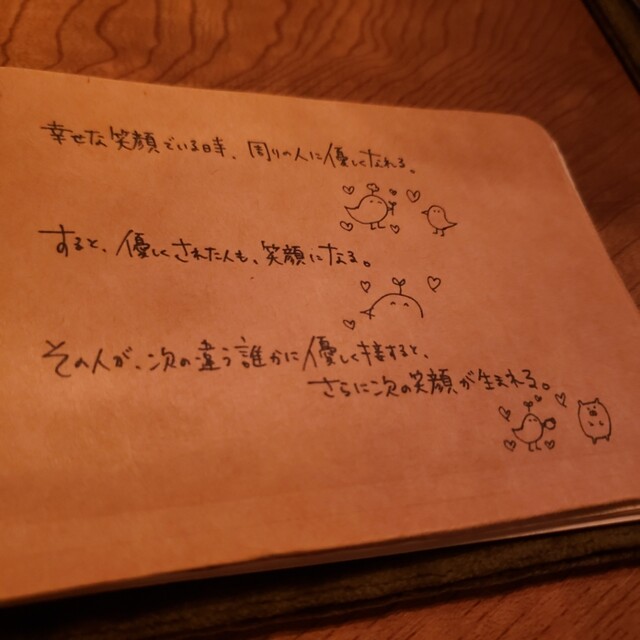 幸せな笑顔でいる時、周りの人に優しくなれる。
すると、優しくされた人も、笑顔になる。
その人が、次の違う誰かに優しく接すると、
さらに次の笑顔が生まれる。